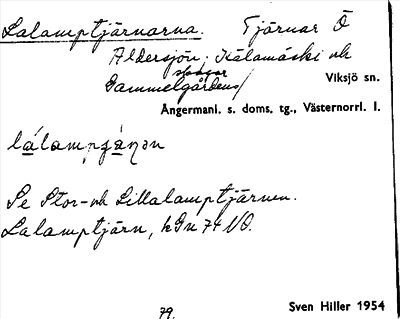 Lalamptjärnarna. Tjärnar Ö
Aldersjön; Kälamäski och
skogar
Gammelgårdens/ Viksjö sn.
Ångermanl. s. doms. tg., Västernorrl. l.
Se Stor- och Lillalamptjärnen.
Lalamptjärn, kGn 74 NO.
79.
Sven Hiller 1954